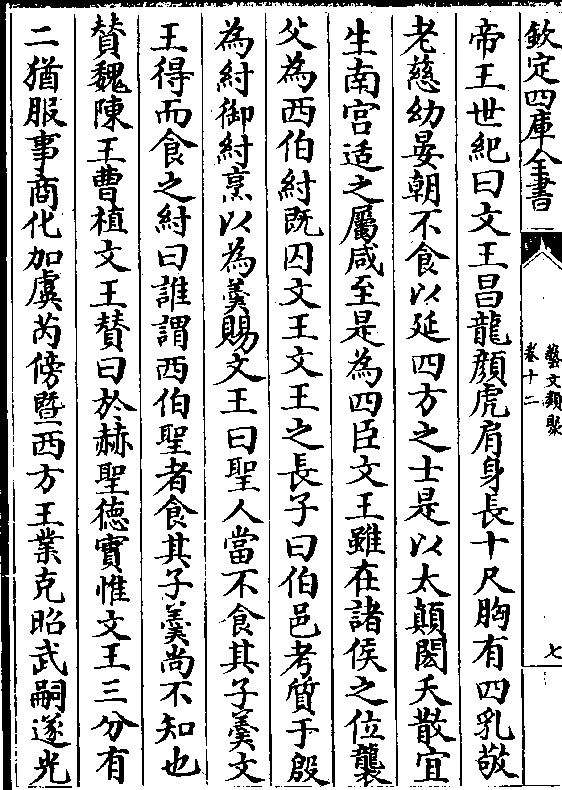 欽定四庫全書
藝文類聚
卷十二
七
帝王世紀曰文王昌龍顏虎肩身長十尺胸有四乳敬
老慈幼晏朝不食以延四方之士是以太顛閎夭散宜
生南宮适之屬咸至是為四臣文王雖在諸侯之位襲
父為西伯紂既囚文王文王之長子曰伯邑考質于殷
為紂御紂烹以為羹賜文王曰聖人當不食其子羹文
王得而食之紂曰誰謂西伯聖者食其子羹尚不知也
贊魏陳王曹植文王贊曰於赫聖德實惟文王三分有
二猶服事商化加虞芮傍暨西方王業克昭武嗣遂光